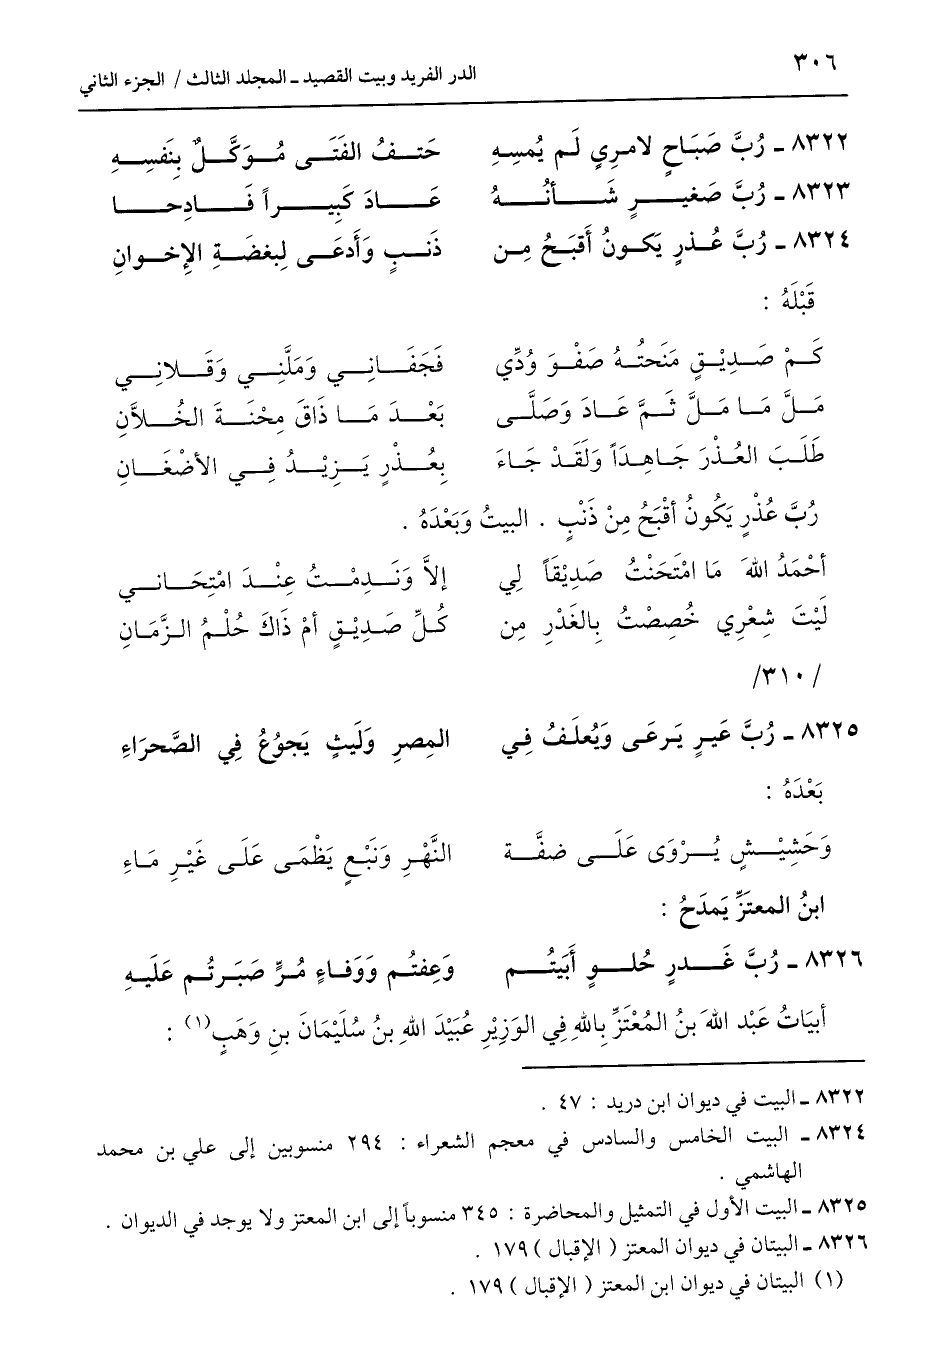 ٣٠٦
الدر الفريد وبيت القصيد ـ المجلد الثالث / الجزء الثاني
٨٣٢٢ ـ رُبَّ صَبَاحٍ لامرِي لَم يُمسِهِ حَتـفُ الفَتَـى مُـوَكَّلٌ بِنَفسِهِ
٨٣٢٣ ـ رُبَّ صَغيـرٍ شَـأنُـهُ عَـادَ كَبِيـراً فَـادِحـا
٨٣٢٤ ـ رُبَّ عُـذرٍ يَكـونُ أَقبَـحُ مِـن ذَنـبٍ وَأَدعَـى لِبغضَـةِ الإخـوانِ
قَبْلَهُ :
كَـمْ صَـدِيـقٍ مَنَحتُـهُ صَفْـوَ وُدِّي فَجَفَـانِـي وَمَلَّنِـي وَقَـلانِـي
مَـلَّ مَـا مَـلَّ ثُـمَّ عَـادَ وَصَلَّـى بَعْـدَ مَـا ذَاقَ مِحْنَـةَ الخُـلاَّنِ
طَلَـبَ العُـذْرَ جَـاهِـدَاً وَلَقَـدْ جَـاءَ بِعُـذْرٍ يَـزِيْـدُ فِـي الأضْغَـانِ
رُبَّ عُذْرٍ يَكُونُ أقْبَحُ مِنْ ذَنْبٍ . البيتُ وَبَعْدَهُ .
أحْمَدُ اللهَ مَا امْتَحَنْتُ صَدِيْقَاً لِي إلاَّ وَنَـدِمْـتُ عِنْـدَ امْتِحَـانـي
لَيْتَ شِعْرِي خُصِصْتُ بِالغَدْرِ مِن كُـلِّ صَـدِيْـقٍ أمْ ذَاكَ حُلْـمُ الـزَّمَـانِ
/٣١٠/
٨٣٢٥ ـ رُبَّ عَيـرٍ يَـرعَـى وَيُعلَـفُ فِـي المِصرِ وَلَيثٍ يَجوُعُ فِي الصَّحرَاءِ
بَعْدَهُ :
وَحَشِيْـشٍ يُـرْوَى عَلَـى ضفَّـة النَّهْرِ وَنَبْعٍ يَظْمَى عَلَى غَيْرِ مَاءِ
ابنُ المعتَزِّ يَمدَحُ :
٨٣٢٦ ـ رُبَّ غَـدرٍ حُلـوٍ أَبَيتُـم وَعِفتُم وَوَفَاءٍ مُـرٍّ صَبَرتُـم عَلَيـهِ
أبيَاتُ عَبْد اللهَ بنُ المُعْتَزِّ بِاللهِ فِي الوَزِيْرِ عُبَيْدَ اللهِ بنُ سُلَيْمَانَ بنِ وَهَبٍ(١) :
٨٣٢٢ ـ البيت في ديوان ابن دريد : ٤٧ .
٨٣٢٤ ـ البيت الخامس والسادس في معجم الشعراء : ٢٩٤ منسوبين إلى علي بن محمد
الهاشمي .
٨٣٢٥ ـ البيت الأول في التمثيل والمحاضرة : ٣٤٥ منسوباً إلى ابن المعتز ولا يوجد في الديوان .
٨٣٢٦ ـ البيتان في ديوان المعتز ( الإقبال ) ١٧٩ .
(١) البيتان في ديوان ابن المعتز ( الإقبال ) ١٧٩ .